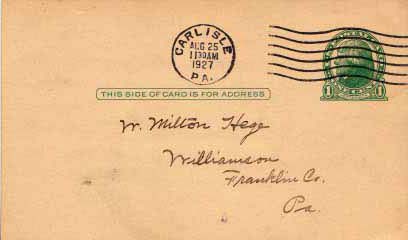 CARLISLE
AUG 25
1130AM
1927
PA.
THIS SIDE OF CARD IS FOR ADDRESS
1 1
W. Milton Hege
Williamson
Franklin Co.
Pa.